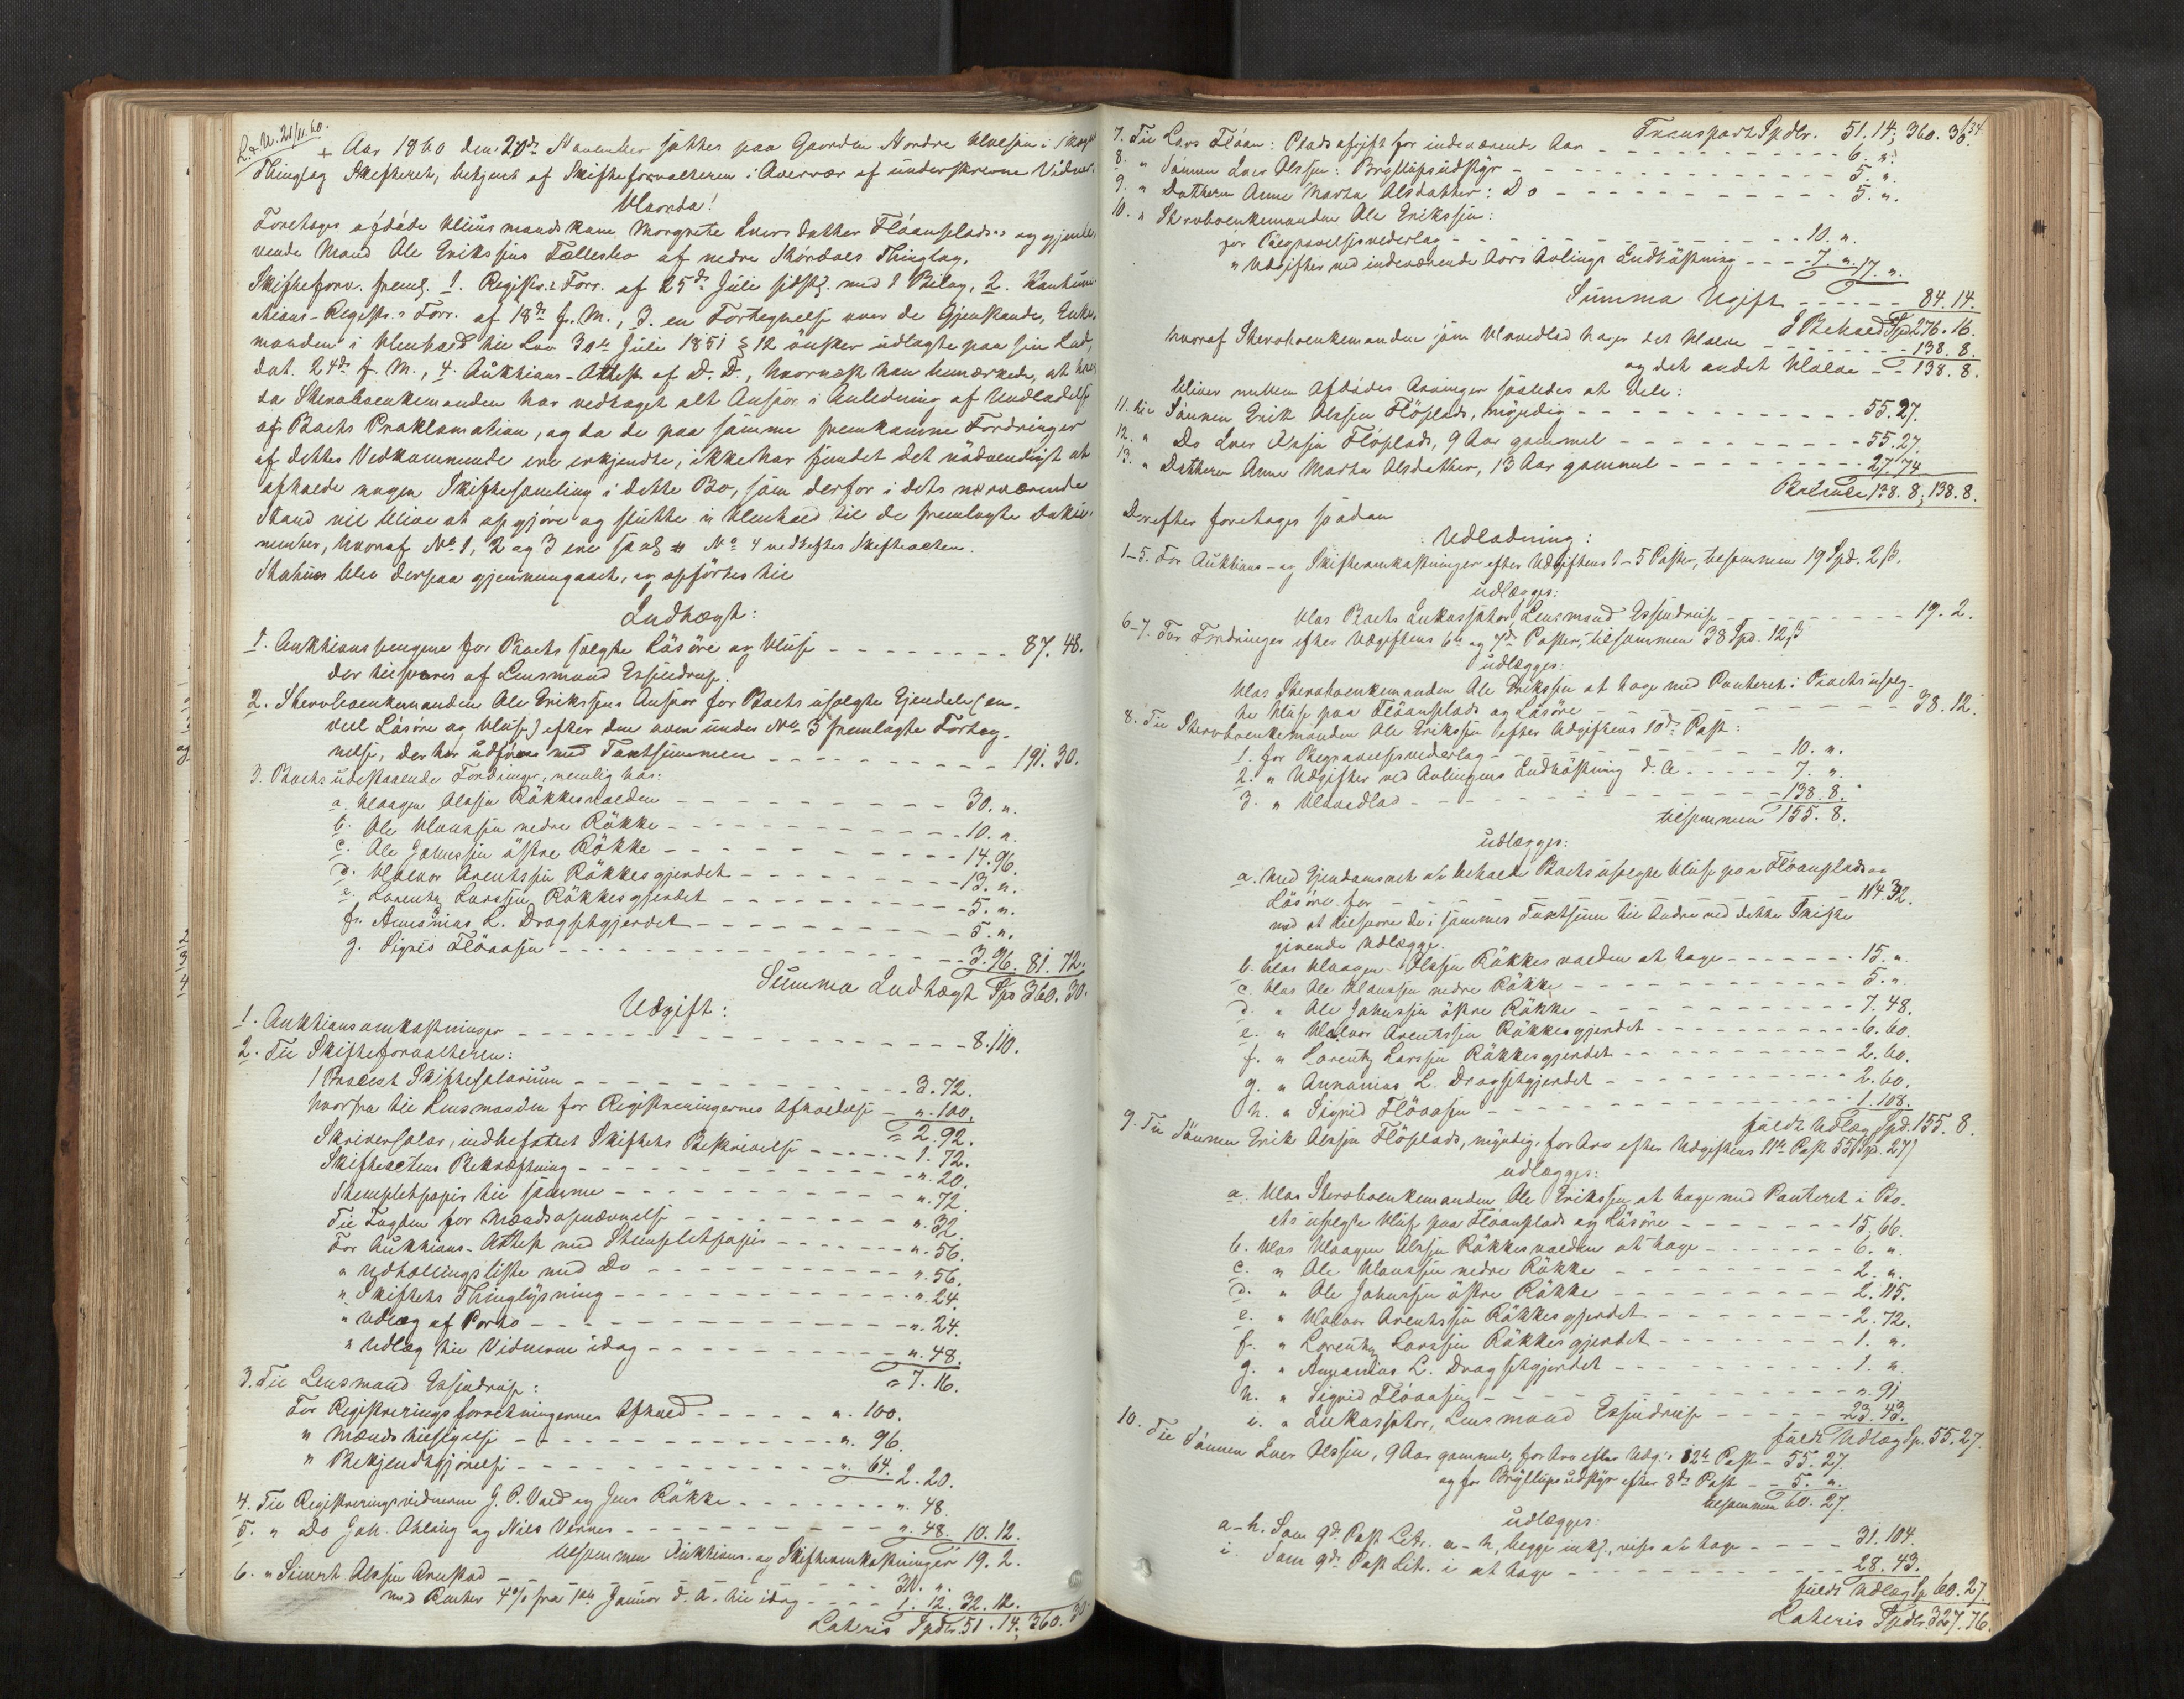 L. & U. 21/11 60.
Aar 1860 den 20de November sattes paa Gaarden Nordre
Thinglag Skifteret, betjent af Skifteforvalteren i Overvær af underskrevne Vidner.
Hvorda!
Foretoges afdøde Huusmandskone Margrete Iversdatter Flöanplads's og gjenle-
vende Mand Ole Erikssøns Fællesbo af nedre Stördals Thinglag.
Skifteforv. freml. 1. Registr.s Forr. af 25de Juli sidstl. med 1 Bilag, 2. Kontinu-
ations-Registr.s Forr. af 18de f. M., 3. en Fortegnelse over de Gjenstande, Enke-
manden i Henhold til Lov 30te Juli 1851 § 12 önsker udlagte paa sin Lod,
dat. 24de f. M., 4. Auktions-Attest af D. D., hvornæst han bemærkede, at
da Stervboenkemanden har vedtaget alt Ansvar i Anledning af Undladelse
af Boets Proklamation, og da de paa samme fremkomne Fordringer
af dettes Vedkommende ere erkjendte, ikke har fundet det nödvendigt at
afholde nogen Skiftesamling i dette Bo, som derfor i dets nærværende
Stand vil blive at opgjöre og slutte i Henhold til de fremlagte Doku-
menter, hvoraf No 1, 2 og 3 ere No 4 vedheftes Skifteacten.
Status blev derpaa gjennemgaaet, og opförtes til
Indtægt:
1. Auktionspengene for Boets solgte Lösöre og Huse - - - 87. 48.
der tilsvares af Lensmand Essendrup.
2. Stervboenkemanden Ole Erikssøns Ansvar for Boets usolgte Ejendele (en-
deel Lösöre og Huse) efter den oven under No 3 fremlagte Forteg-
nelse, der her udföres med Taxtsummen - - - 191. 30.
3. Boets udestaaende Fordringer, nemlig hos:
a. Haagen Olssøn Rökkesvolden - - - 30. ".
b. Ole Hanssøn nedre Rökke - - - 10. ".
c. Ole Johnssøn östre Rökke - - - 14. 96.
d. Halvor Arentssøn Rökkesgjerdet - - - 13. ".
e. Lorentz Larssøn Rökkesgjerdet - - - 5. ".
f. Annanias L. Dragstgjerdet - - - 5. ".
g. Sigrid Flöaasen - - - 3. 96. 81. 72.
Summa Indtægt Spd 360. 30.
Udgift:
1. Auktionsomkostninger - - - 8. 110.
2. Til Skifteforvalteren:
1 Procent Skiftesalarium - - - 3. 72.
hvorfra til Lensmanden for Registreringernes Afholdelse - ". 100.
= 2. 92.
Skriversalar, indbefattet Skiftets Beskrivelse - - - 1. 72.
Skifteactens Bekræftning - - - ". 20.
Stempletpapir til samme - - - ". 72.
Til Fogden for Mændsopnævnelse - - - ". 32.
For Auktions-Attest med Stempletpapir - - - ". 56.
" Udtællingsliste med Do - - - ". 56.
" Skiftets Thinglysning - - - ". 24.
" Udlæg af Porto - - - ". 24.
" Udlæg til Vidnerne idag - - - ". 48.
= 7. 16.
3. Til Lensmand Essendrup:
For Registreringsforretningernes Afhold - - - ". 100.
" Mænds Tilsigelse - - - ". 96.
" Bekjendtgjörelse - - - ". 64. 2. 20.
4. Til Registreringsvidnerne J. P. Vold og Jens Rökke - - - ". 48.
5. " Do Joh. Ahling og Niels Vernes - - - ". 48. 10. 12.
tilsammen Auktions- og Skifteomkostninger 19. 2.
6. " Simert Olssøn Arnstad - - - 31. ".
med Renter 4% fra 1ste Januar d. A. til idag - - - 1. 12. 32. 12.
Lateris Spdlr. 51. 14; 360. 30
Transport Spdlr. 51. 14; 360. 30. 34.
7. Til Lars Flöan: Pladsafgift for indeværende Aar - - - 6. ".
8. " Sönnen Iver Olssøn: Bryllupsudstyr - - - 5. ".
9. " Datteren Anne Marta Olsdatter: Do - - - 5. ".
10. " Stervboenkemanden Ole Erikssøn:
for Begravelsesvederlag - - - 10. ".
" Udgifter ved indeværende Aars Avlings Indhöstning - - - 7. ". 17. ".
Summa Ugift - - - 84. 14.
I Behold Spd 276. 16.
hvoraf Stervboenkemanden som Hovedlod tager det Halve - - - 138. 8.
og det andet Halve - - 138. 8.
bliver mellem Afdödes Arvinger saaledes at dele:
11. til Sönnen Erik Olssøn Flöplads, myndig - - - 55. 27.
12. " Do Iver Olssøn Flöplads, 9 Aar gammel - - - 55. 27.
13. " Datteren Anne Marta Olsdatter, 13 Aar gammel - - - 27. 74
138. 8; 138. 8.
Derefter foretages sådan
Udlodning:
1-5. For Auktions- og Skifteomkostninger efter Udgiftens 1-5 Poster, tilsammen 19 Spd. 2 ß.
udlægges:
Hos Boets Inkassator, Lensmand Essendrup - - - 19. 2.
6-7. For Fordringer efter Udgiftens 6te og 7de Poster, tilsammen 38 Spd. 12 ß
udlægges:
Hos Stervboenkemanden Ole Erikssøn at tage med Panteret i Boets usolg-
te Huse paa Flöanplads og Lösöre - - - 38. 12.
8. Til Stervboenkemanden Ole Erikssøn efter Udgiftens 10de Post:
1. for Begravelsesvederlag - - - 10. ".
2. " Udgifter ved Avlingens Indhöstning d. A. - - - 7. ".
3. " Hovedlod - - - 138. 8.
tilsammen 155. 8.
udlægges:
a. Med Ejendomsret at beholde Boets usolgte Huse paa Flöanplads og
Lösöre for - - - 114. 32.
mod at tilsvare de i sammes Taxtsum til Andre ved dette Skifte
givende Udlægge.
b. Hos Haagen Olssøn Rökkesvolden at tage - - - 15. ".
c. Hos Ole Hanssøn nedre Rökke - - - 5. ".
d. " Ole Johnssøn östre Rökke - - - 7. 48.
e. " Halvor Arentssøn Rökkesgjerdet - - - 6. 60.
f. " Lorentz Larssøn Rökkesgjerdet - - - 2. 60.
g. " Annanias L. Dragstgjerdet - - - 2. 60.
h. " Sigrid Flöaasen - - - 1. 108.
fuldt Udlæg Spd. 155. 8.
9. Til Sönnen Erik Olssøn Flöplads, myndig, for Arv efter Udgiftens 11te Post 55 Spd. 27)
udlægges:
a. Hos Stervboenkemanden Ole Erikssøn at tage med Panteret i Bo-
ets usolgte Huse paa Flöanplads og Lösöre - - - 15. 66.
b. Hos Haagen Olssøn Rökkesvolden at tage - - - 6. ".
c. " Ole Hanssøn nedre Rökke - - - 2. ".
d. " Ole Johnssøn östre Rökke - - - 2. 115.
e. " Halvor Arentssøn Rökkesgjerdet - - - 2. 72.
f. " Lorentz Larssøn Rökkesgjerdet - - - 1. ".
g. " Annanias L. Dragstgjerdet - - - 1. ".
h. " Sigrid Flöaasen - - - ". 91
i. " Inkassator, Lensmand Essendrup - - - 23. 43.
fuldt Udlæg Sp. 55. 27.
10. Til Sönnen Iver Olssøn, 9 Aar gammel, for Arv efter Udg.s 12te Post - 55. 27.
og for Bryllupsudstyr efter 8de Post - - 5. ".
tilsammen 60. 27.
udlægges:
a-h. Som 9de Post Litr. a-h, begge inkl., vises at tage - - - 31. 104.
i Som 9de Post Litr. i at tage - - - 28. 43.
fuldt Udlæg Sp 60. 27.
Lateris Spdlr. 327. 76.